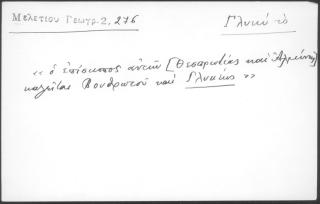 Μελετίου Γεωγρ. 2, 276
Γλυκύ τὸ
« ὁ ἐπίσκοπος αὐτῶν [Θεσπρωτίας καὶ
καλεῖται Βουθρωτοῦ καὶ Γλυκέως »